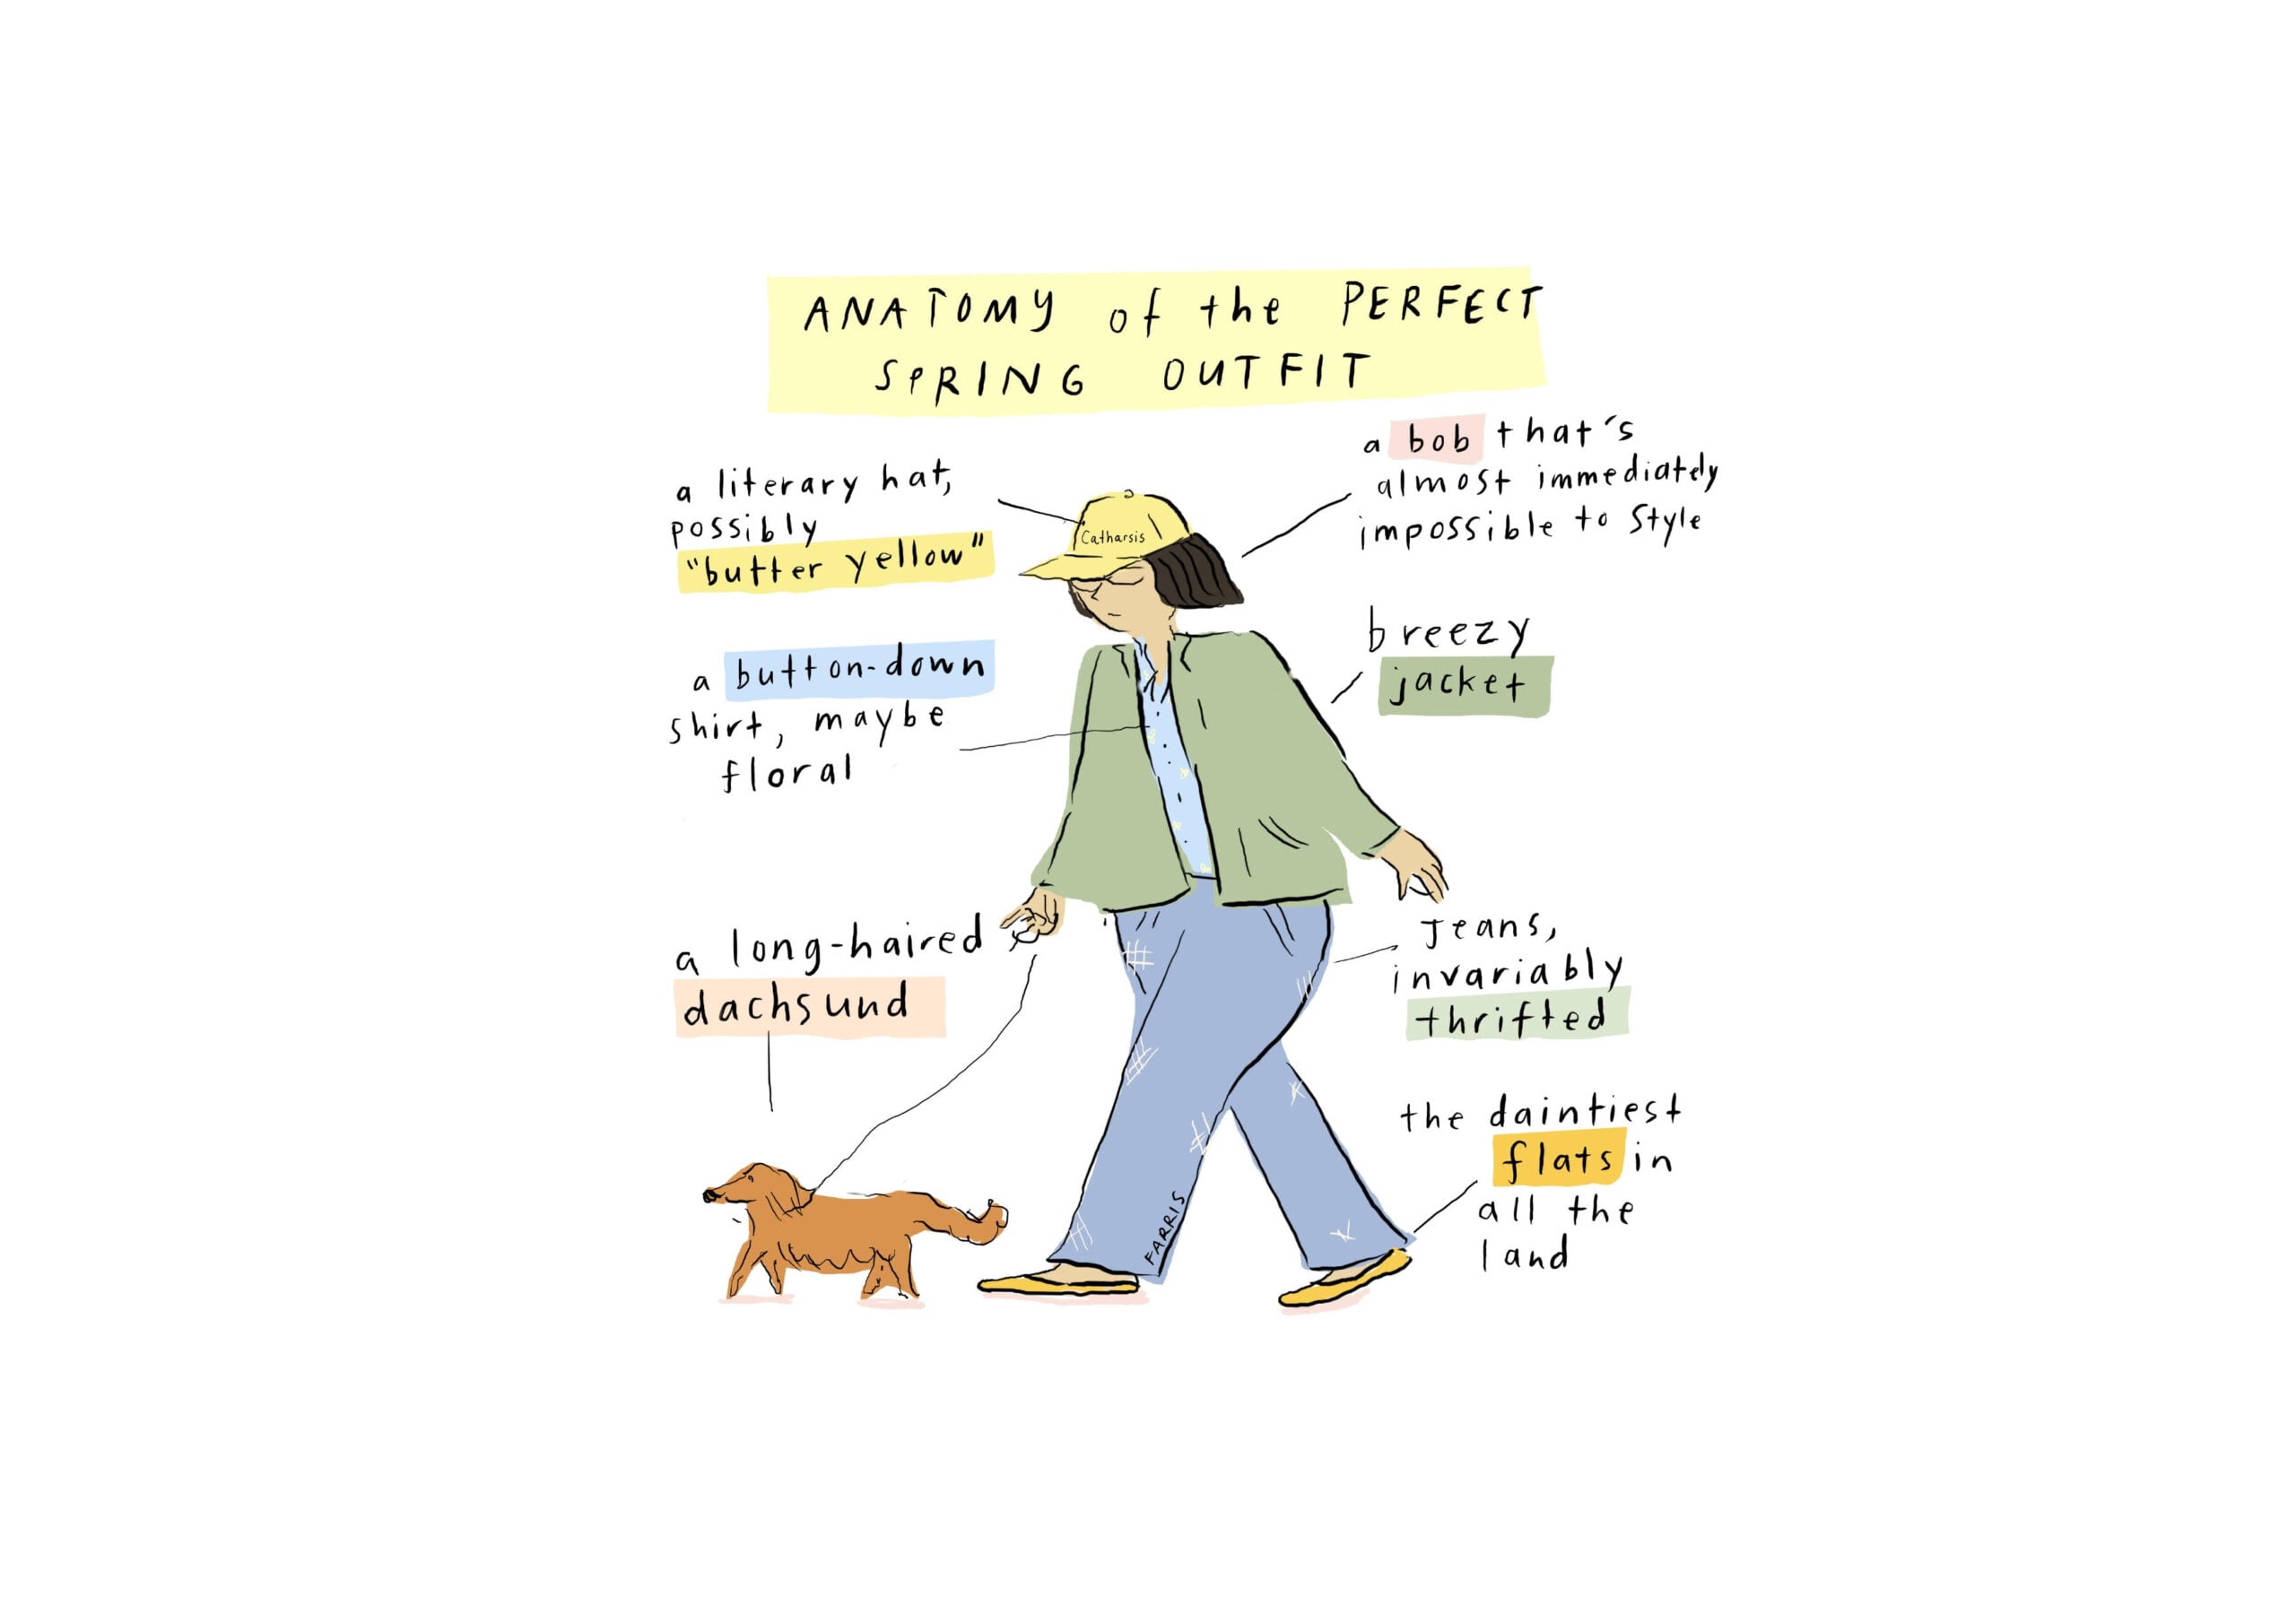 ANATOMY of the PERFECT
SPRING OUTFIT
a literary hat,
possibly
"butter yellow"
a bob that's
almost immediately
impossible to style
Catharsis
a button-down
shirt, maybe
floral
breezy
jacket
a long-haired
dachsund
Jeans,
invariably
thrifted
the daintiest
flats in
all the
land
FARRIS